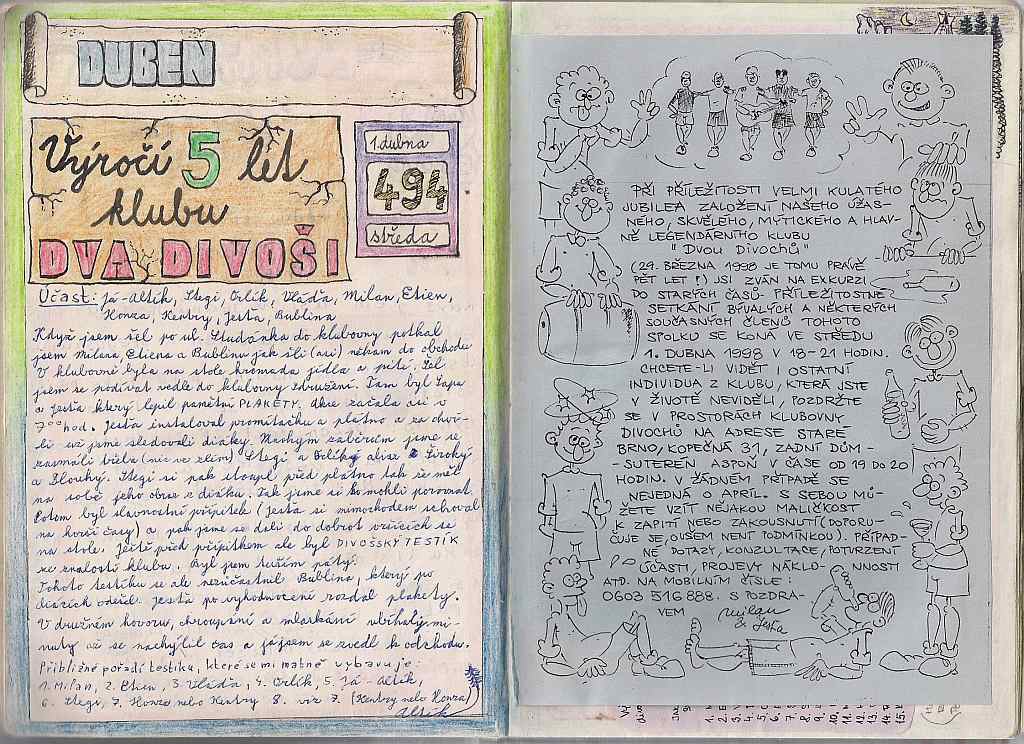 DUBEN
Výročí 5 let
klubu
DVA DIVOŠI
1. dubna
494
středa
Účast: Já-Altík, Stegi, Orlík, Vláďa, Milan, Etien,
Honza, Kentry, Jesťa, Bublina
Když jsem šel po ul. Studánka do klubovny potkal
jsem Milana, Etiena a Bublinu jak šli (asi) někam do obchodu
V klubovně byla na stole hromada jídla a pití. Šel
jsem se podívat vedle do klubovny združení. Tam byl Sapa
a Jesťa který lepil pamětní PLAKETY. Akce začala asi v
7°° hod. Jesťa instaloval promítačku a plátno a za chví-
li už jsme sledovali diáky. Některým záběrům jsme se
zasmáli (nic ve zlém) Stegi a Orlík alias Široký
a Dlouhý. Stegi si pak stoupl před plátno tak že měl
na sobě jeho obraz z diáku. Tak jsme si ho mohli porovnat.
Potom byl slavnostní přípitek (Jesťa si mimochodem schoval
na horší časy) a pak jsme se dali do dobrot vršících se
na stole. Ještě před přípitkem ale byl DIVOŠSKÝ TESTÍK
ze znalostí klubu. Byl jsem tuším pátý.
Tohoto testíku se ale nezúčastnil Bublina, který po
diácích odešel. Jesťa po vyhodnocení rozdal plakety.
V družném hovoru, chroupání a mlaskání ubíhaly mi-
nuty až se nachýlil čas a já jsem se zvedl k odchodu.
Přibližné pořadí testíku, které se mi matně vybavuje:
1. Milan, 2. Etien, 3. Vláďa, 4. Orlík, 5. Já-Altík,
6. Stegi, 7. Honza nebo Kentry 8. viz 7. (Kentry nebo Honza)
Altík
PŘI PŘÍLEŽITOSTI VELMI KULATÉHO
JUBILEA ZALOŽENÍ NAŠEHO ÚŽAS-
NÉHO, SKVĚLÉHO, MYTICKÉHO A HLAV-
NĚ LEGENDÁRNÍHO KLUBU
"DVOU DIVOCHŮ"
(29. BŘEZNA 1998 JE TOMU PRÁVĚ
PĚT LET!) JSI ZVÁN NA EXKURZI
DO STARÝCH ČASŮ. PŘÍLEŽITOSTNÉ
SETKÁNÍ BÝVALÝCH A NĚKTERÝCH
SOUČASNÝCH ČLENŮ TOHOTO
SPOLKU SE KONÁ VE STŘEDU
1. DUBNA 1998 V 18-21 HODIN.
CHCETE-LI VIDĚT I OSTATNÍ
INDIVIDUA Z KLUBU, KTERÁ JSTE
V ŽIVOTĚ NEVIDĚLI, POZDRŽTE
SE V PROSTORÁCH KLUBOVNY
DIVOCHŮ NA ADRESE STARÉ
BRNO, KOPEČNÁ 31, ZADNÍ DŮM-
-SUTERÉN ASPOŇ V ČASE OD 19 DO 20
HODIN. V ŽÁDNÉM PŘÍPADĚ SE
NEJEDNÁ O APRÍL. S SEBOU MŮ-
ŽETE VZÍT NĚJAKOU MALIČKOST
K ZAPITÍ NEBO ZAKOUSNUTÍ (DOPORU-
ČUJE SE, OVŠEM NENÍ PODMÍNKOU). PŘÍPAD-
NÉ DOTAZY, KONZULTACE, POTVRZENÍ
ÚČASTI, PROJEVY NÁKLONNOSTI
ATD. NA MOBILNÍM ČÍSLE:
0603 516 888. S POZDRA-
VEM Milan
a Jesťa